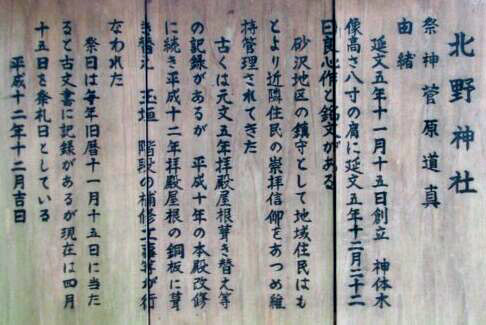 北野神社
祭神 菅原道真
由緒
延文五年十一月十五日創立 神体木
像高さ八寸の肩に延文五年十二月二十二
日良心作と銘文がある
砂沢地区の鎮守として地域住民はも
とより近隣住民の崇拝信仰をあつめ維
持管理されてきた
古くは元文五年拝殿屋根葺き替え等
の記録があるが 平成十年の本殿改修
に続き平成十二年拝殿屋根の銅板に葺
き替え 玉垣 階段の補修工事等が行
なわれた
祭日は毎年旧暦十一月十五日に当た
ると古文書に記録があるが現在は四月
十五日を祭礼日としている
平成十二年十二月吉日